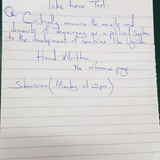 Take home Test.
Qn Critically examine the merits and
demerits of democracy as a political system
to the development of countries like Uganda
Hand Written,
No reference page
Submission (Monday at 5pm)